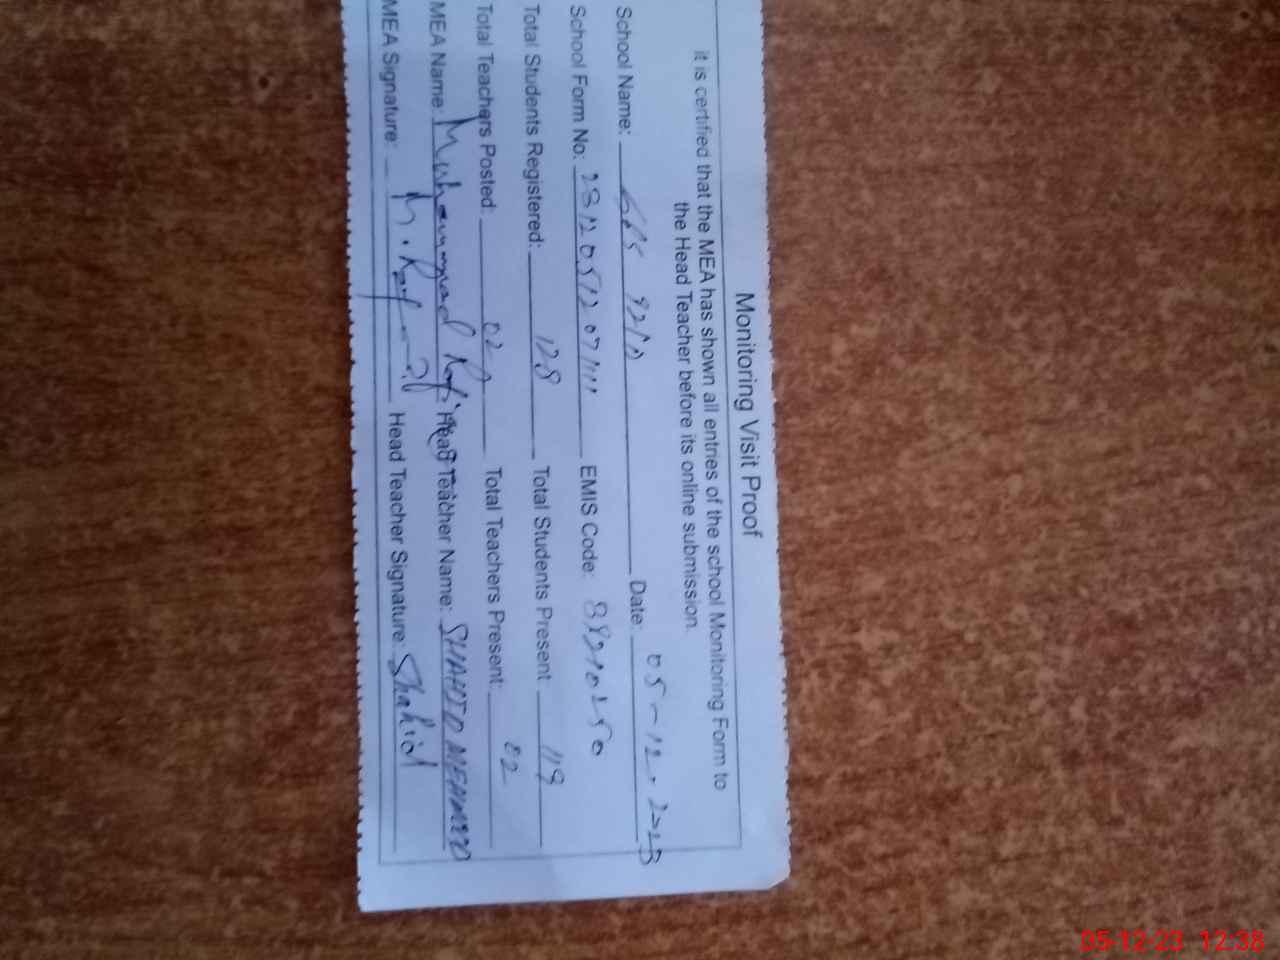 Monitoring Visit Proof
it is certified that the MEA has shown all entries of the school Monitoring Form to
the Head Teacher before its online submission.
School Name: Date: 05-12-2023
School Form No: EMIS Code:
Total Students Registered: 128 Total Students Present 119
Total Teachers Posted: 02 Total Teachers Present: 02
MEA Name: Muhammad Rafi Head Teacher Name: SHAHID MEHMOOD
MEA Signature: Head Teacher Signature: Shahid
05-12-23 12:38